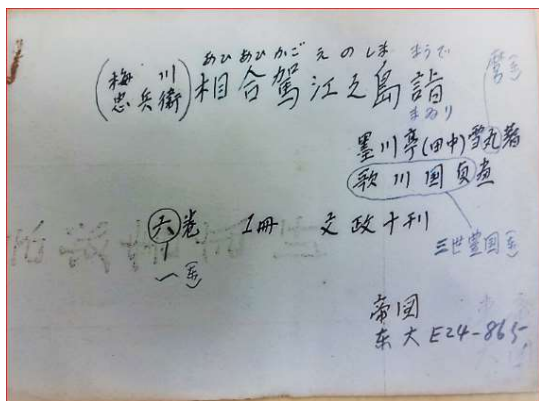 あひあひかご えのしま まうで
(梅川忠兵衛) 相合駕江之島詣
まゐり
墨川亭(田中)雪丸著
麿(年)
歌川国貞画
三世豊国(年)
六巻 1冊 文政十刊
一(年)
帝図
东大 E24-865